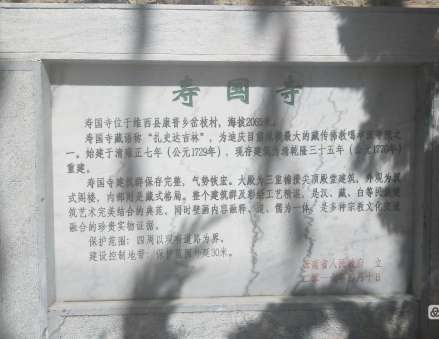 寿国寺
寿国寺位于维西县康普乡岔枝村，海拔2065米。
寿国寺藏语称“扎史达吉林”，为迪庆目前规模最大的藏传佛教噶举派寺院之
一。始建于清雍正七年（公元1729年），现存建筑为清乾隆三十五年（公元1770年）
重建。
寿国寺建筑群保存完整，气势恢宏。大殿为三重檐攒尖顶殿堂建筑，外观为汉
式阁楼，内部则是藏式格局。整个建筑群及彩绘工艺精湛，是汉、藏、白等民族建
筑艺术完美结合的典范，同时壁画内容融释、道、儒为一体，是多种宗教文化交流
融合的珍贵实物证据。
保护范围：四周以现有道路为界。
建设控制地带：保护范围外延30米。
云南省人民政府 立
月十日